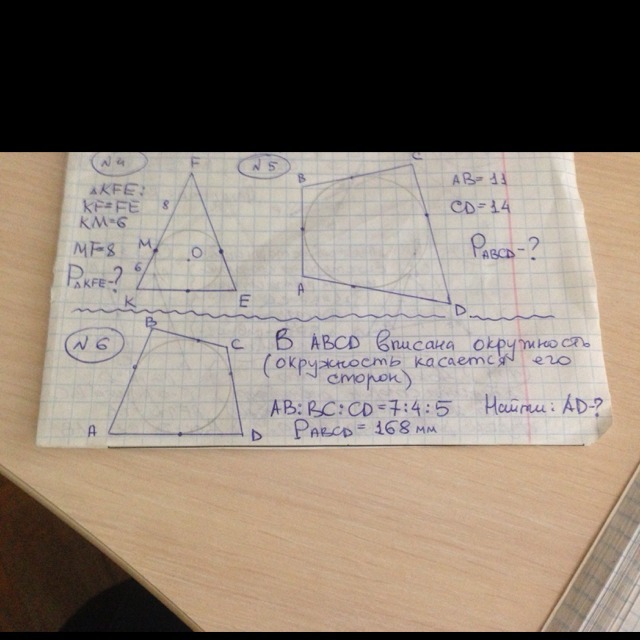 N4
△KFE:
KF=FE
KM=6
MF=8
P△KFE-?
F
8
M
O
6
K
E
N5
B
C
A
D
AB=11
CD=14
PABCD-?
N6
B
C
A
D
В ABCD вписана окружность
(окружность касается его
сторон)
AB:BC:CD=7:4:5 Найти: AD-?
PABCD=168мм